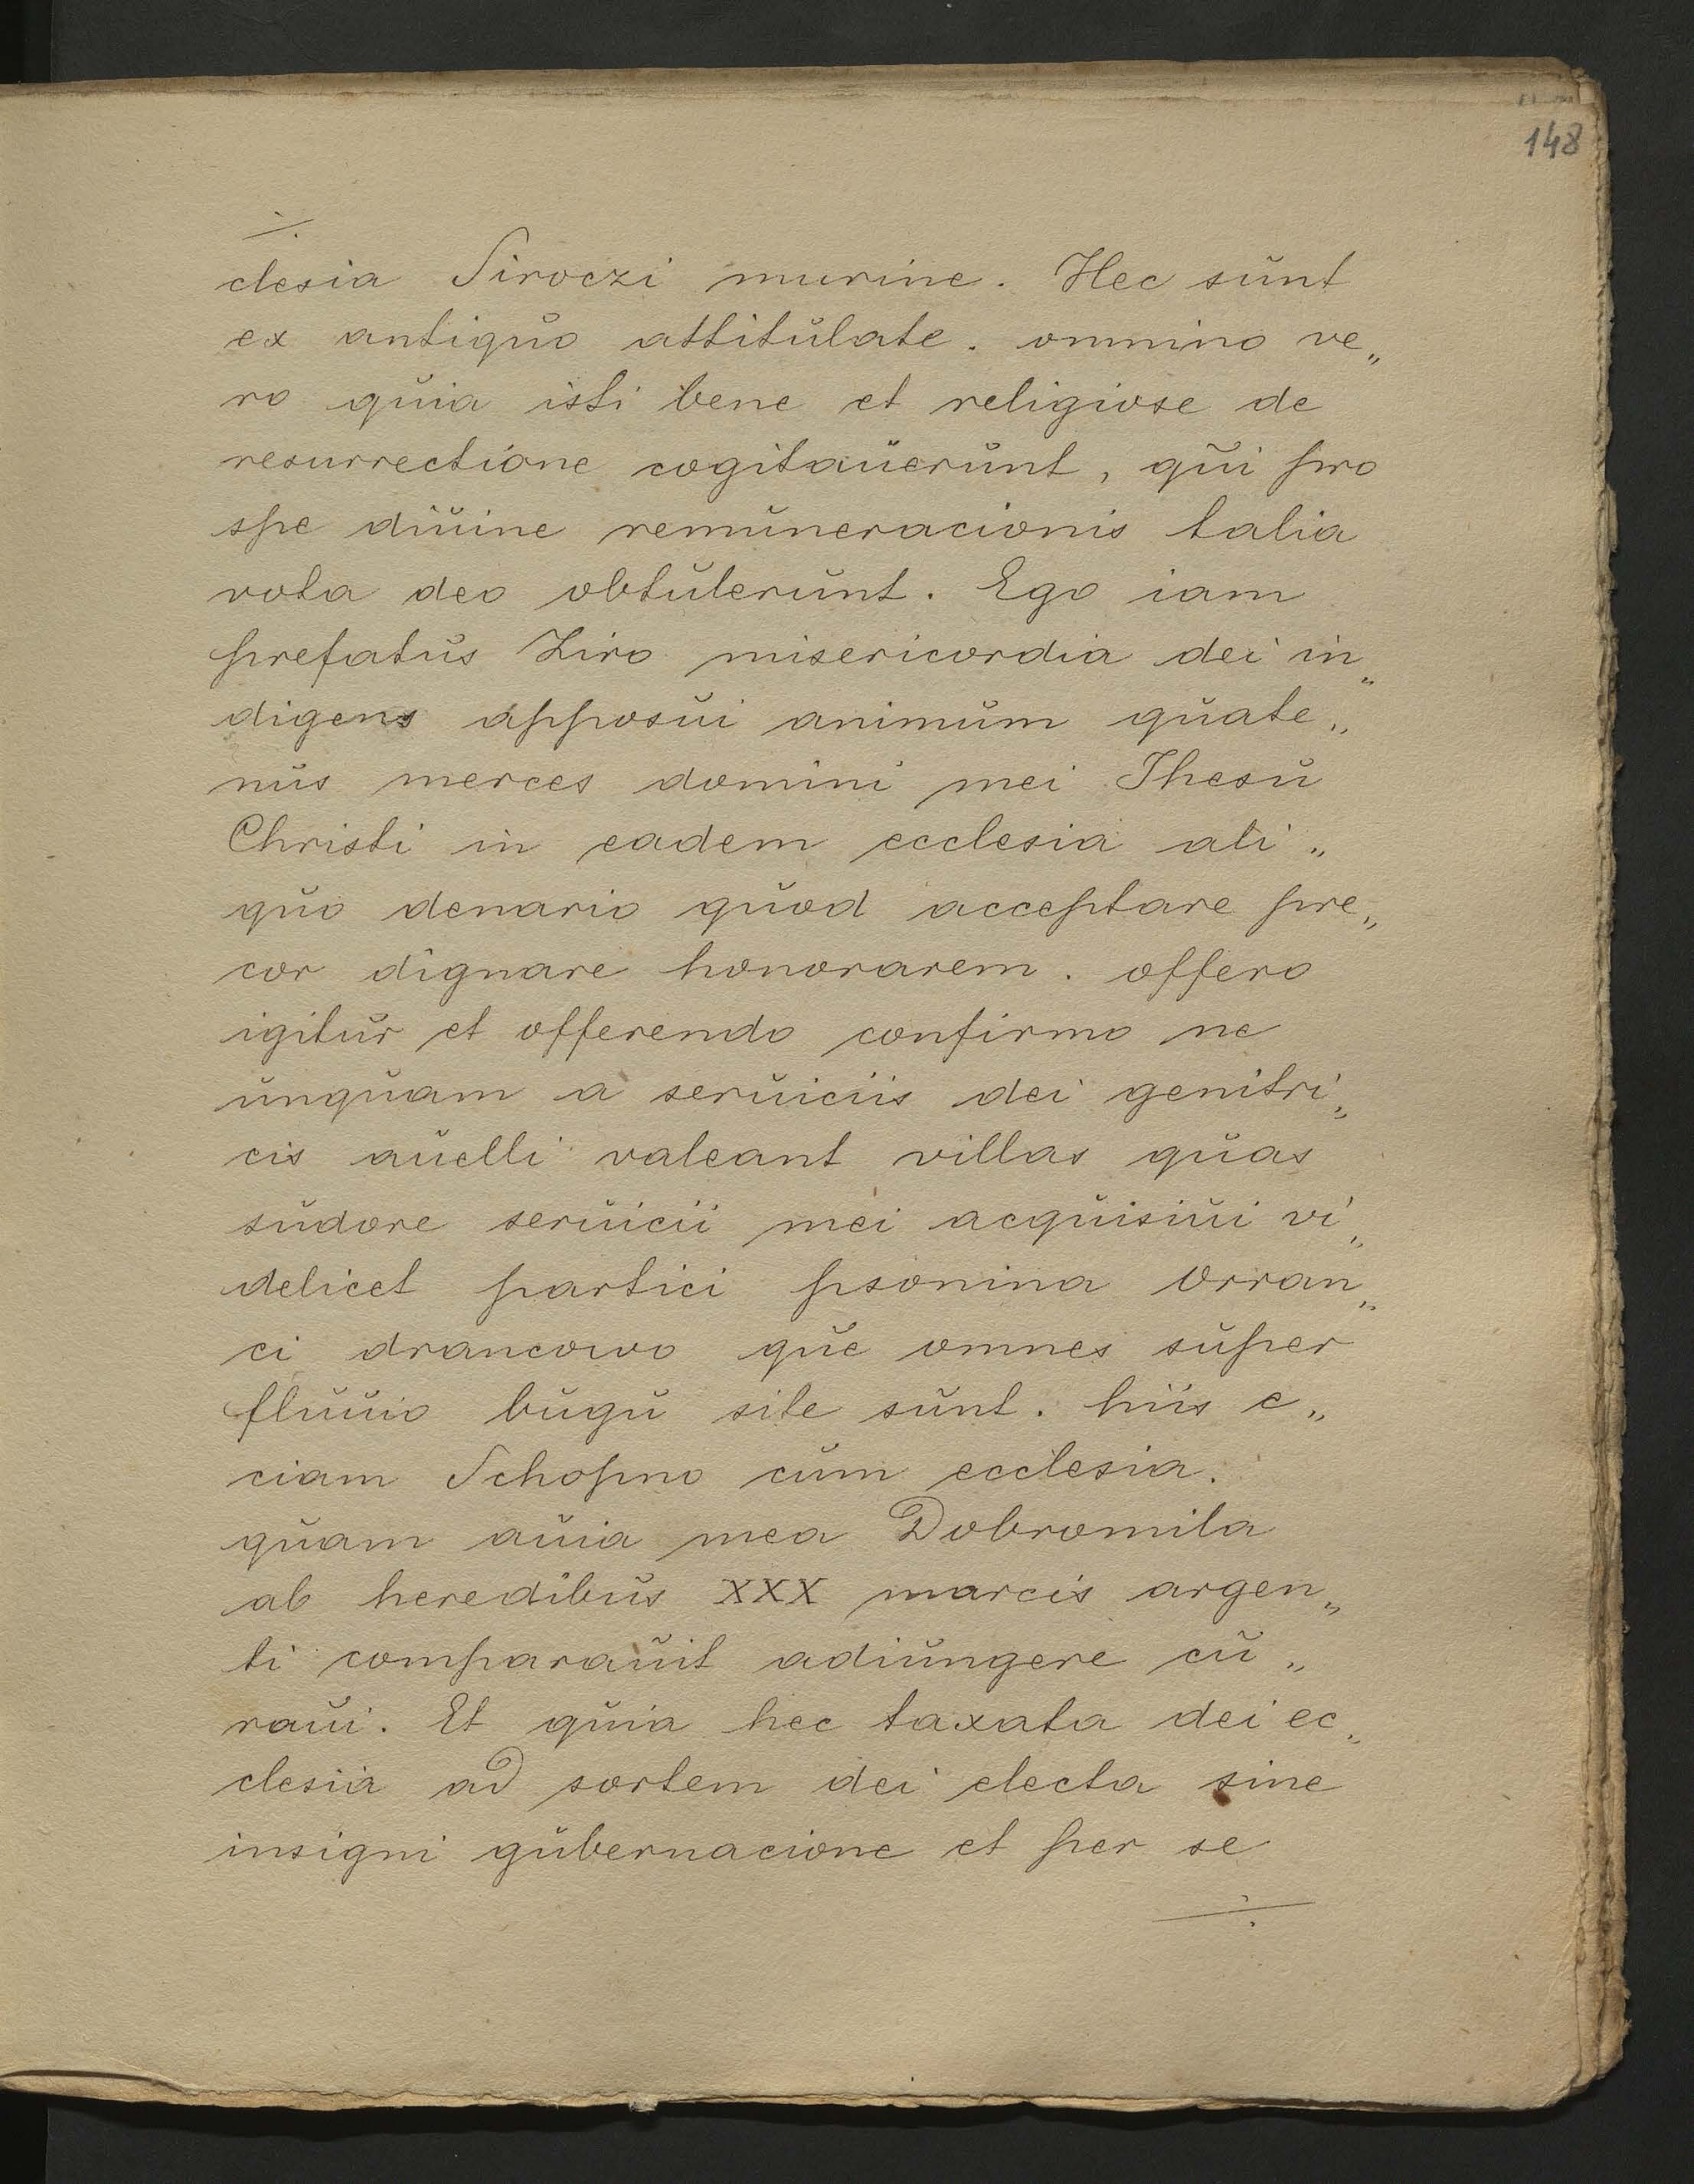 148
clesia Siroczi murine. Hec sunt
ex antiquo attitulate. ommino ve„
ro quia isti bene et religiose de
resurrectione cogitauerunt, qui pro
spe diuine remuneracionis talia
vota deo obtulerunt. Ego iam
prefatus Ziro misericordia dei in„
digens apposui animum quate„
nus merces domini mei Jhesu
Christi in eadem ecclesia ali„
quo denario quod acceptare pre„
cor dignare honorarem. offero
igitur et offerendo confirmo ne
unquam a seruiciis dei genitri„
cis auelli valeant villas quas
sudore seruicii mei acquisiui vi„
delicet partici psonina Orran„
ci drancowo que omnes super
fluuio bugu site sunt. hiis e„
ciam Schopno cum ecclesia.
quam auia mea Dobromila
ab heredibus XXX marcis argen„
ti comparauit adiungere cu„
raui. Et quia hec taxata dei ec„
clesia ad sortem dei electa sine
insigni gubernacione et per se